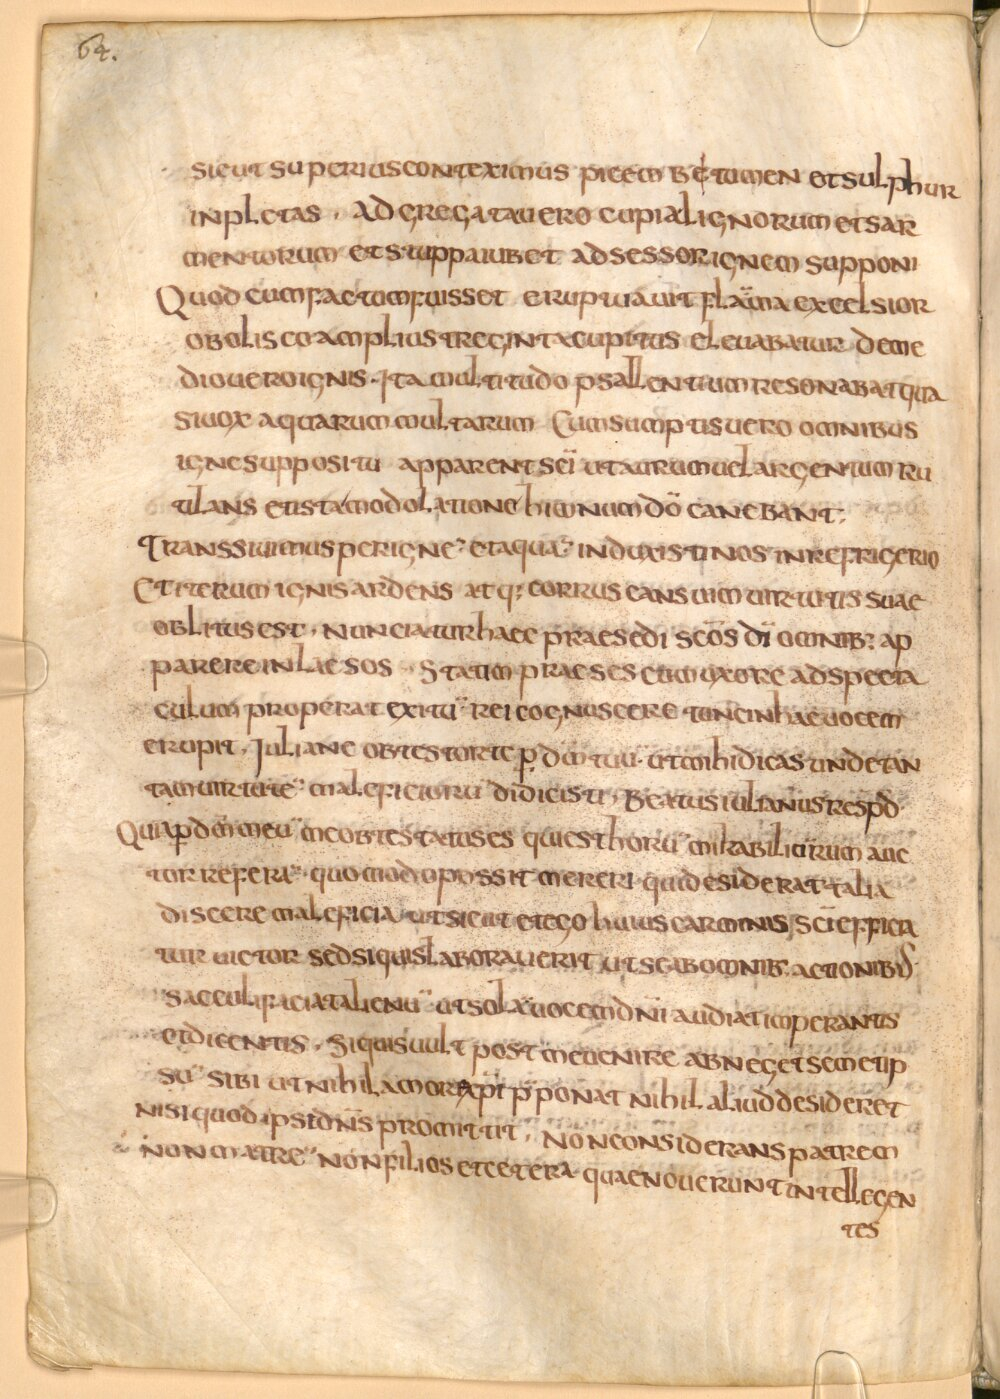 64.
sicut superius conteximus picem betumen et sulphur
inpletas · adgregata vero cupia lignorum et sar
mentorum et stuppa iubet adsessor ignem supponi
Quod cum factum fuisset erupuiavit flāma excelsior
obolisco amplius treginta cupitus elevabatur deme
dio vero ignis · Ita multitudo psallentium resonabat qua
si vox aquarum multarum Cum sumptis vero omnibus
igne suppositu apparent sc̄i ut aurum vel argentum ru
tilans et ista modolatione himnum dō canebant ·
Transsivimus per ignē et aquā induxisti nos in refrigerio
Et iterum ignis ardens atq; corruscans vim virtutis suae
oblitus est · nunciatur haec praesedi sc̄os dī omnib; ap
parere inlaesos · Statim praeses cum uxore ad specta
culum properat exitū rei cognuscere tunc in hac vocem
erupit · Juliane obtestor te p dm tuū · ut mihi dicas unde tan
tam virtutē maleficiorū didicisti · Beatus iulianus respd
Quia p dm meū me obtestatus es qui est horū mirabiliūrum auc
tor referā · quomodo possit mereri qui desiderat talia
discere maleficia · ut sicut et ego huius carminis scī effici a
tur victor sed si quis laboraverit ut se ab omnib; actionib;
saeculi faciat alienū ut solā vocem dnī audiat imperantis
et dicentis · Si quis vult post me venire abneget semetip
sū sibi ut nihil amori xpī pponat nihil aliud desideret
nisi quod ipsi dn̄s promittit · non considerans patrem
non matrē non filios et cetera quae noverunt intellegen
tes